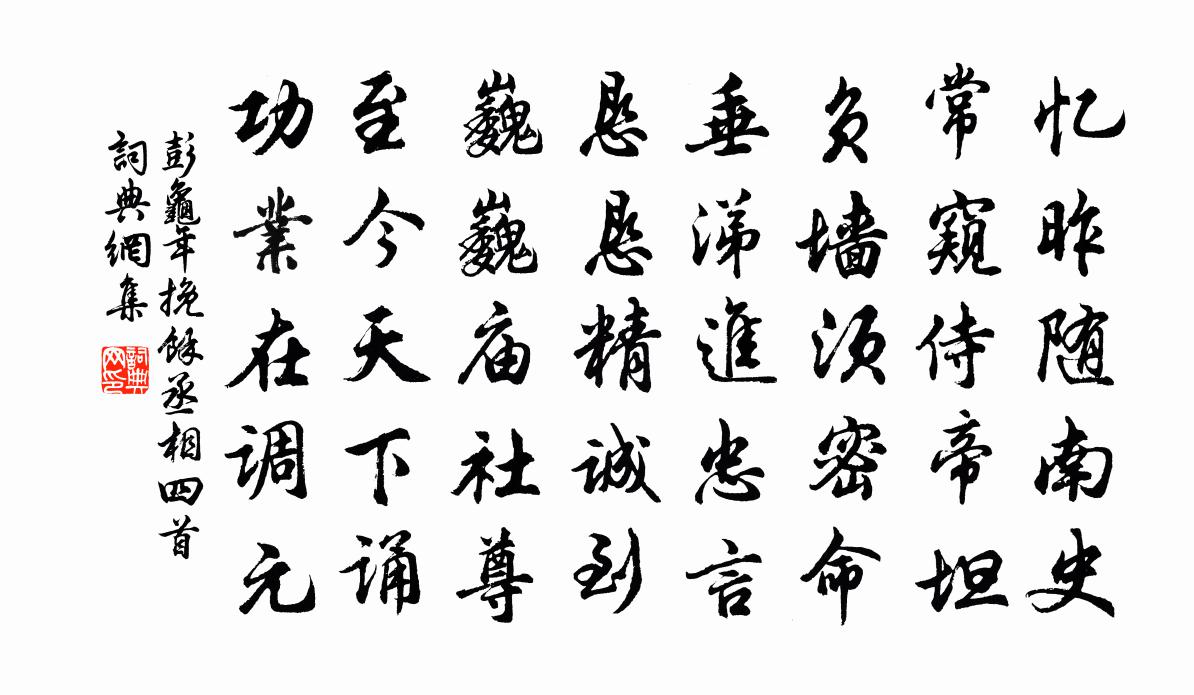 忆昨随南史
常窺侍帝垣
负墙须密命
垂涕進忠言
恳恳精诚到
巍巍庙社尊
至今天下诵
功業在调元
彭龜年挽餘丞相四首
詞典網集
詞典网印